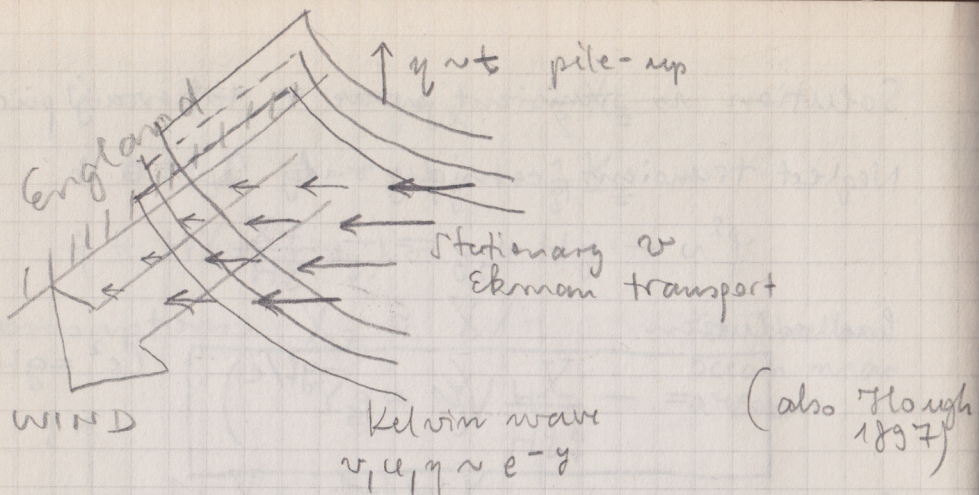 η ~ t pile-up
England
Stationary v
Ekman transport
WIND
Kelvin wave
v, u, η ~ e^-y
(also Hough
1897)